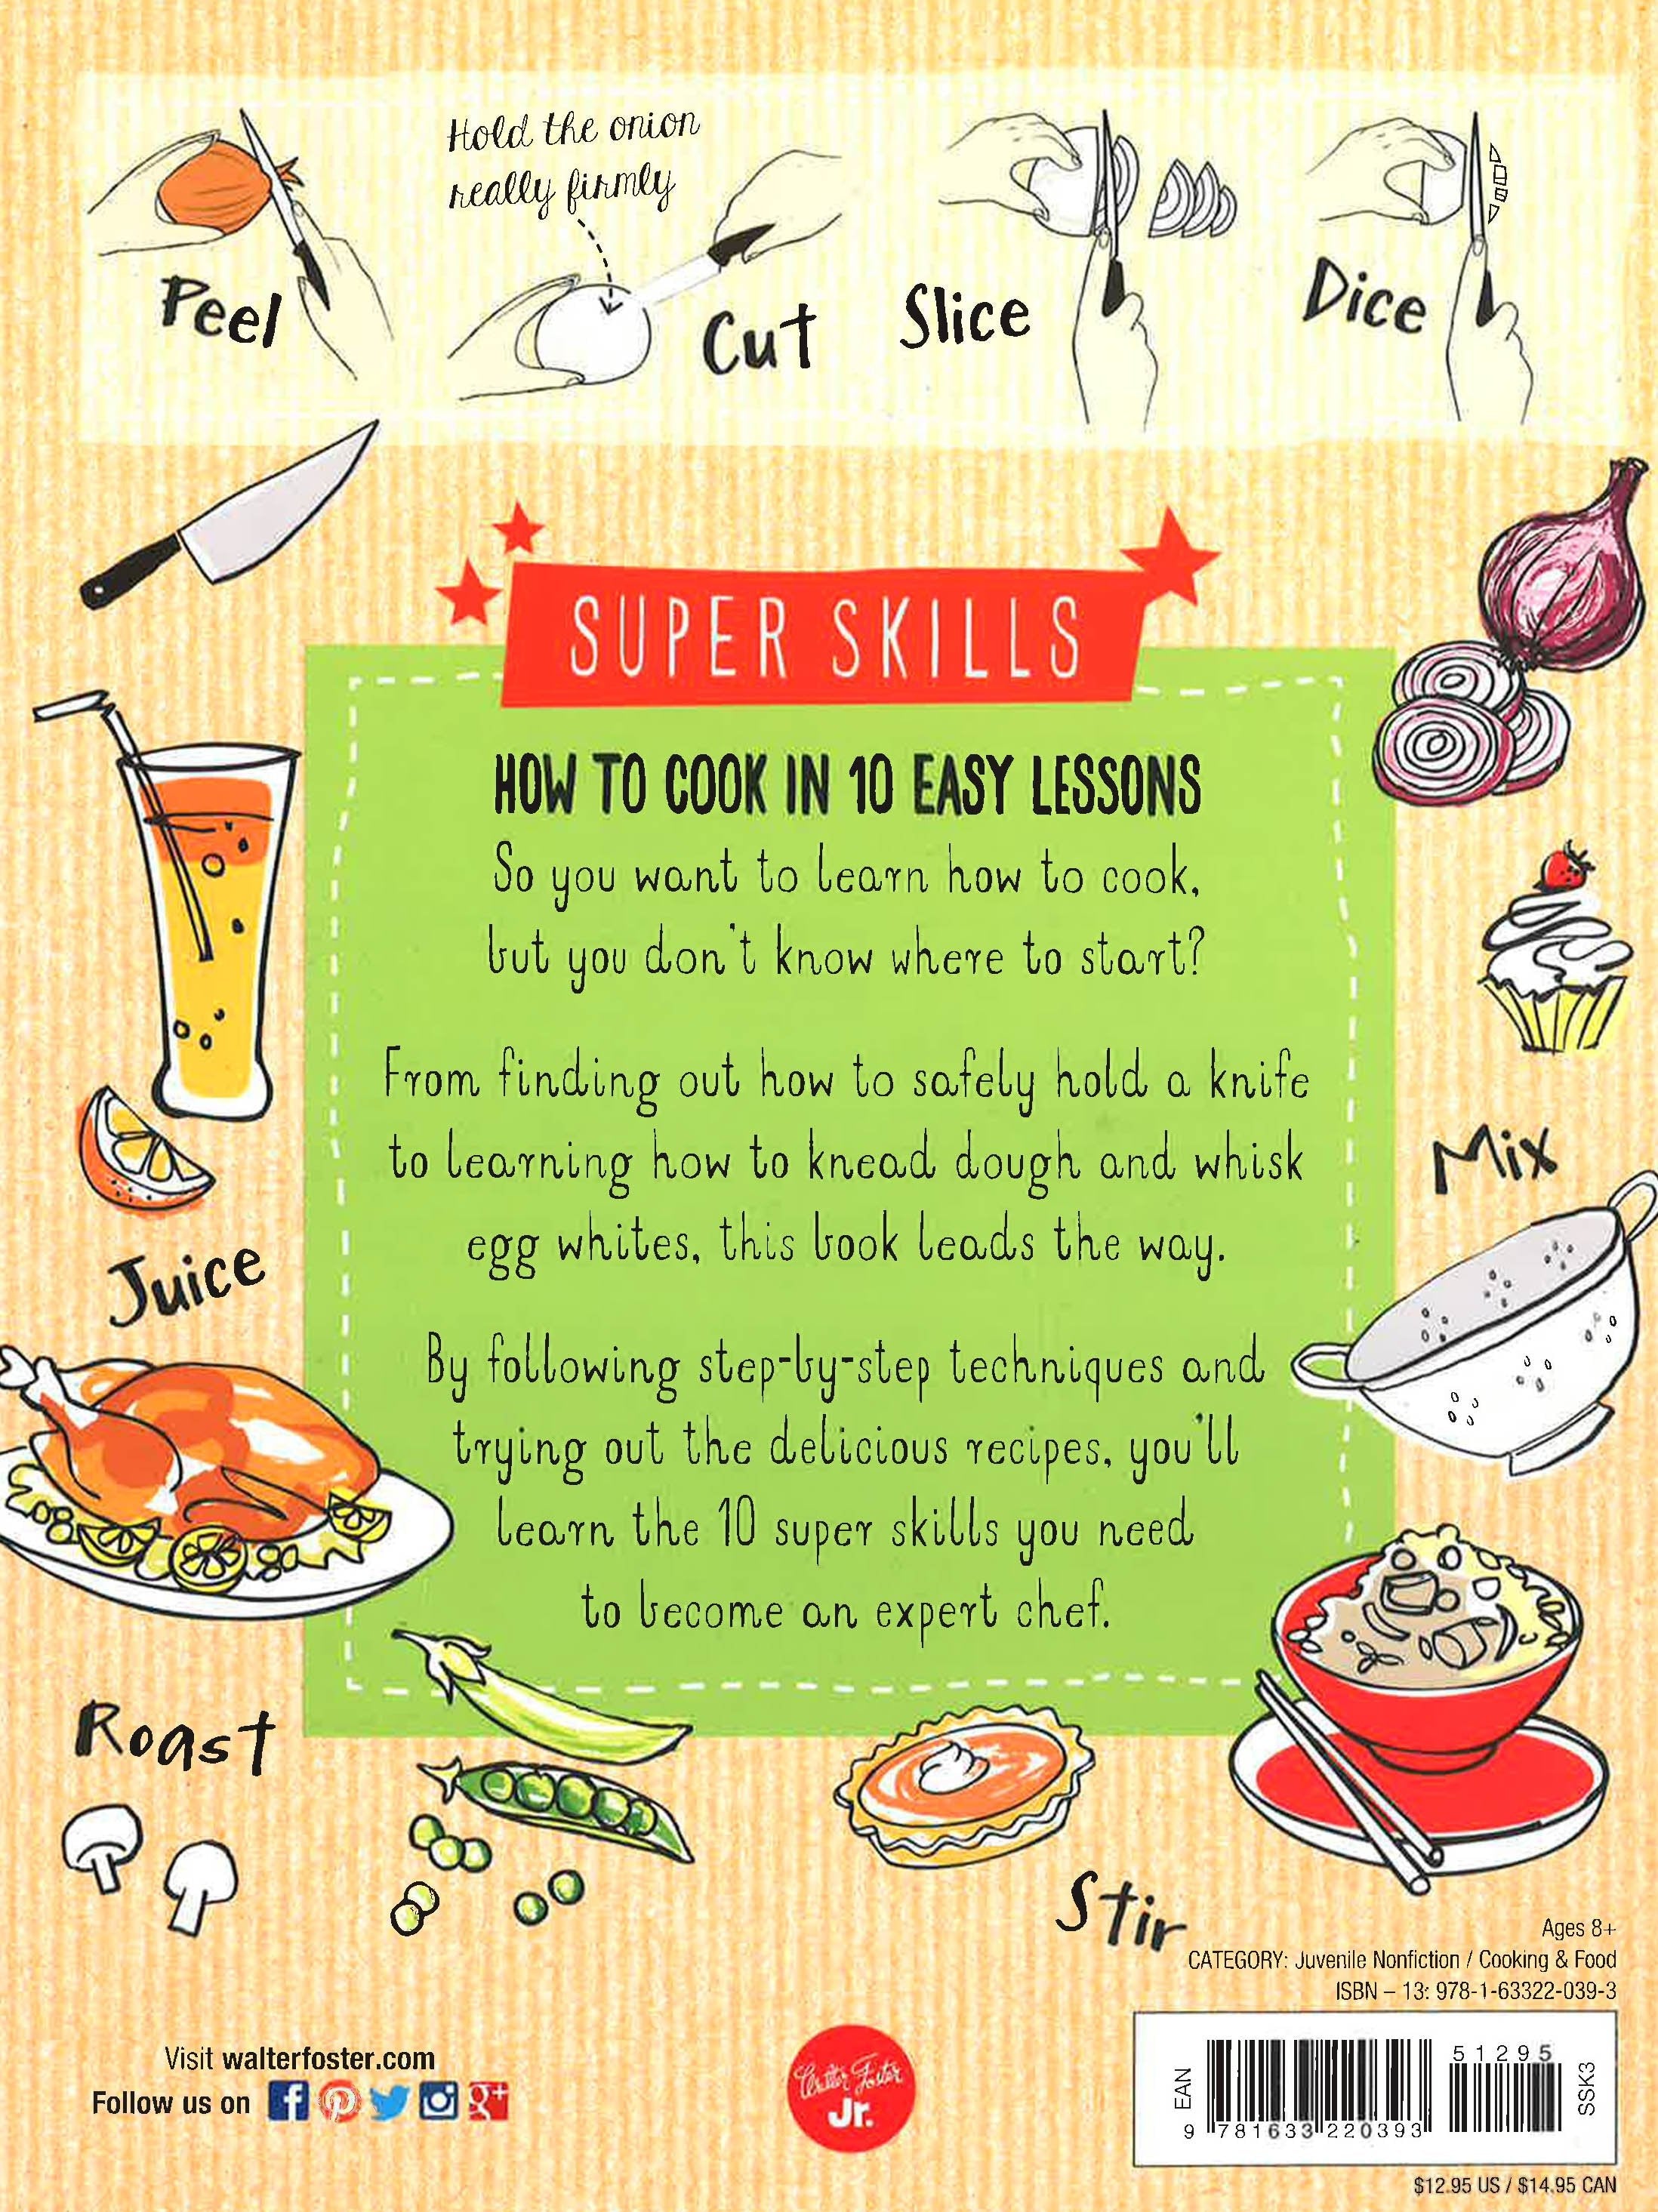 Hold the onion
really firmly
Peel
Cut
Slice
Dice
SUPER SKILLS
HOW TO COOK IN 10 EASY LESSONS
So you want to learn how to cook,
but you don't know where to start?
From finding out how to safely hold a knife
to learning how to knead dough and whisk
egg whites, this book leads the way.
By following step-by-step techniques and
trying out the delicious recipes, you'll
learn the 10 super skills you need
to become an expert chef.
Juice
Mix
Roast
Stir
Ages 8+
CATEGORY: Juvenile Nonfiction / Cooking & Food
ISBN – 13: 978-1-63322-039-3
Visit walterfoster.com
Follow us on
Walter Foster
Jr.
EAN
9 781633 220393
51295
SSK3
$12.95 US / $14.95 CAN